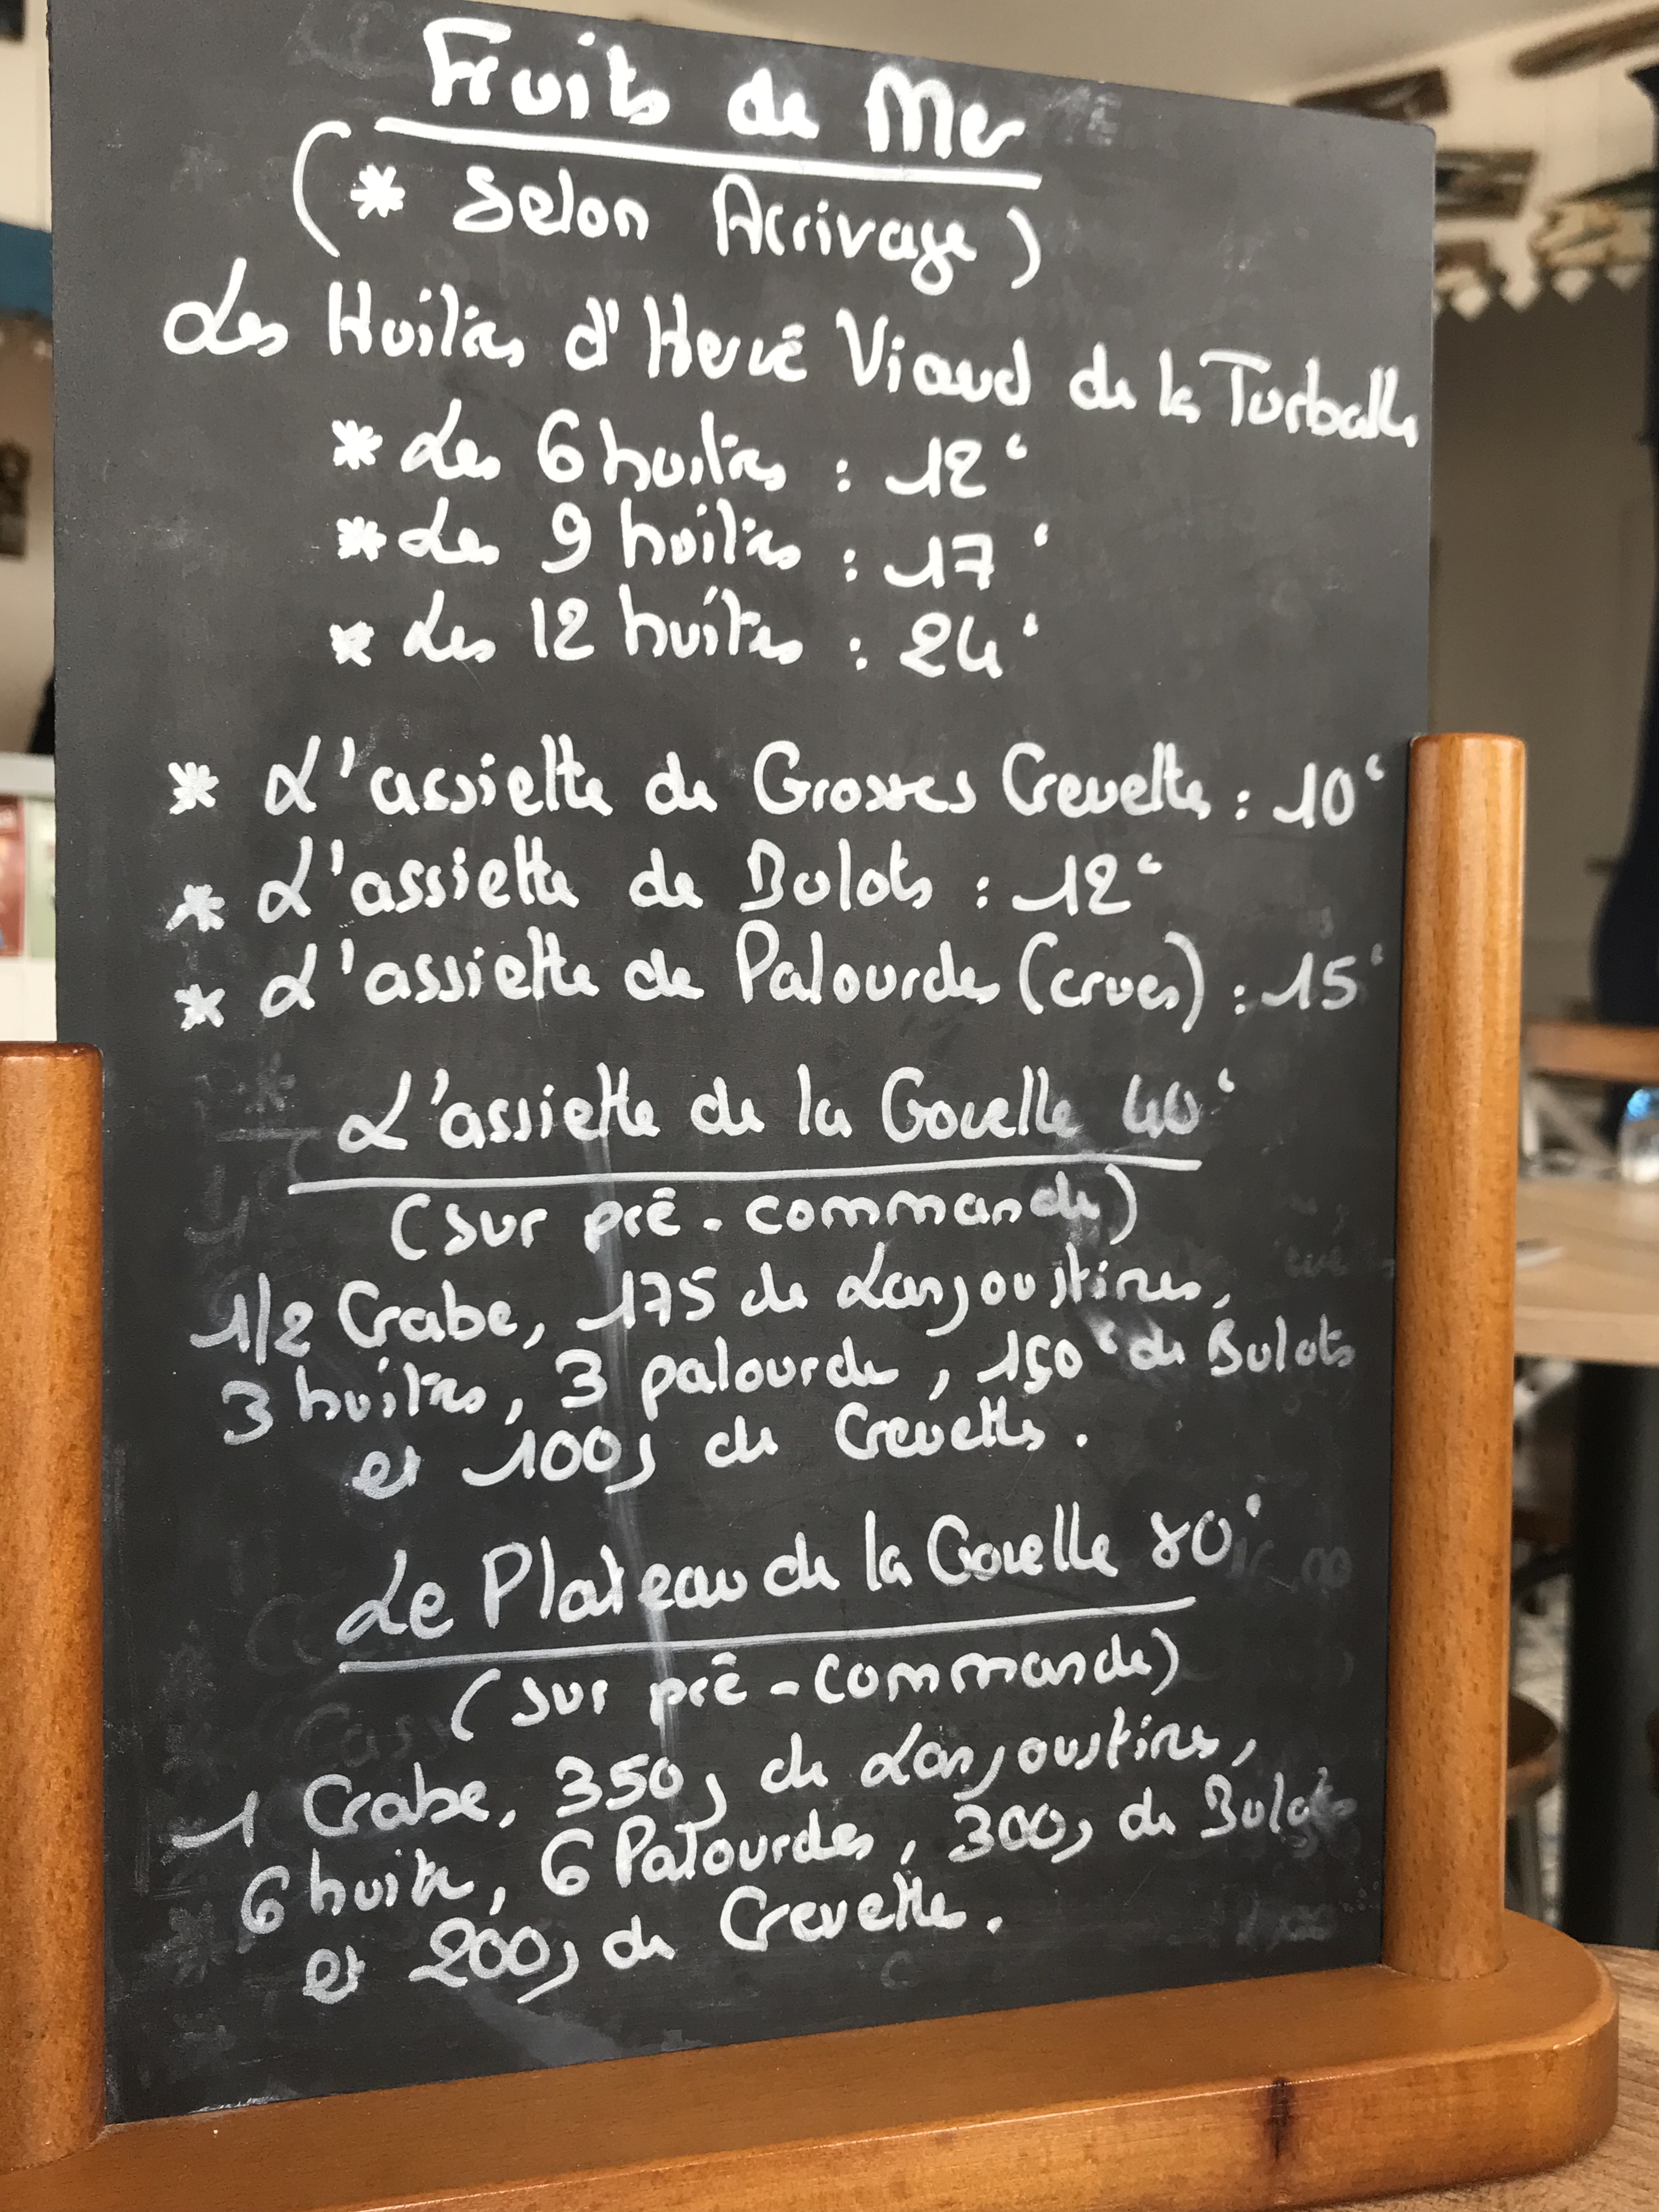 Fruits de Mer
(* Selon Arrivage)
Les Huîtres d'Hervé Viaud de la Turballe
* Les 6 huîtres : 12€
* Les 9 huîtres : 17€
* Les 12 huîtres : 24€
* L'assiette de Grosses Crevettes : 10€
* L'assiette de Bulots : 12€
* L'assiette de Palourdes (crues) : 15€
L'assiette de la Govelle 40€
(sur pré-commande)
1/2 Crabe, 175 de Langoustines,
3 huîtres, 3 palourdes, 150g de Bulots
et 100g de Crevettes.
Le Plateau de la Govelle 80€
(sur pré-commande)
1 Crabe, 350g de Langoustines,
6 huitres, 6 Palourdes, 300g de Bulots
et 200g de Crevettes.